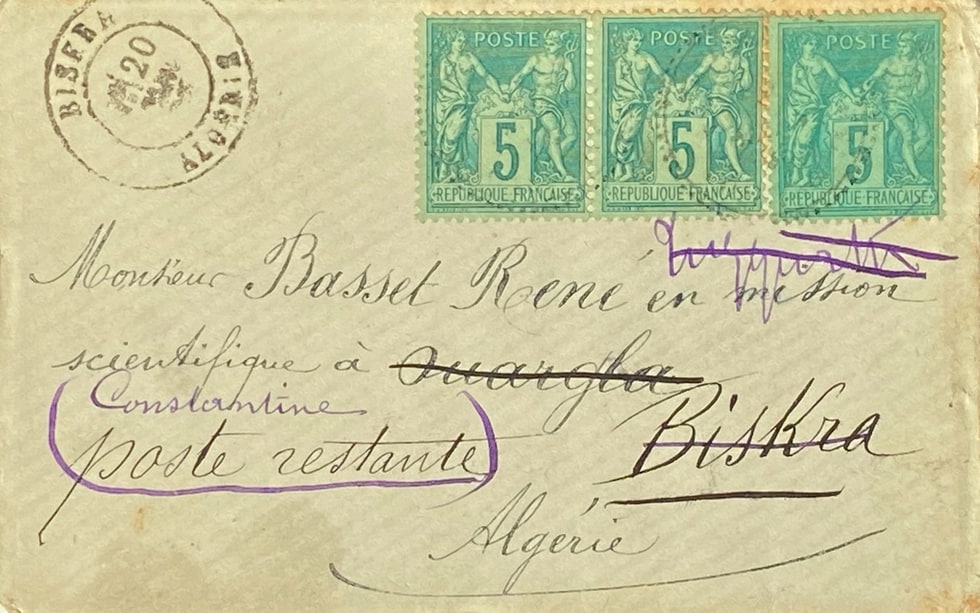 20
POSTE POSTE POSTE
5 5 5
REPUBLIQUE FRANÇAISE REPUBLIQUE FRANÇAISE REPUBLIQUE FRANÇAISE
Monsieur Basset René en mission
scientifique à Ouargla
Constantine
Biskra
poste restante
Algérie